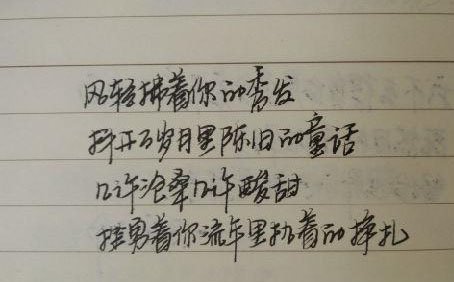 风轻拂着你的秀发
抖开了岁月里陈旧的童话
几许沧桑几许酸甜
着你流年里执着的挣扎